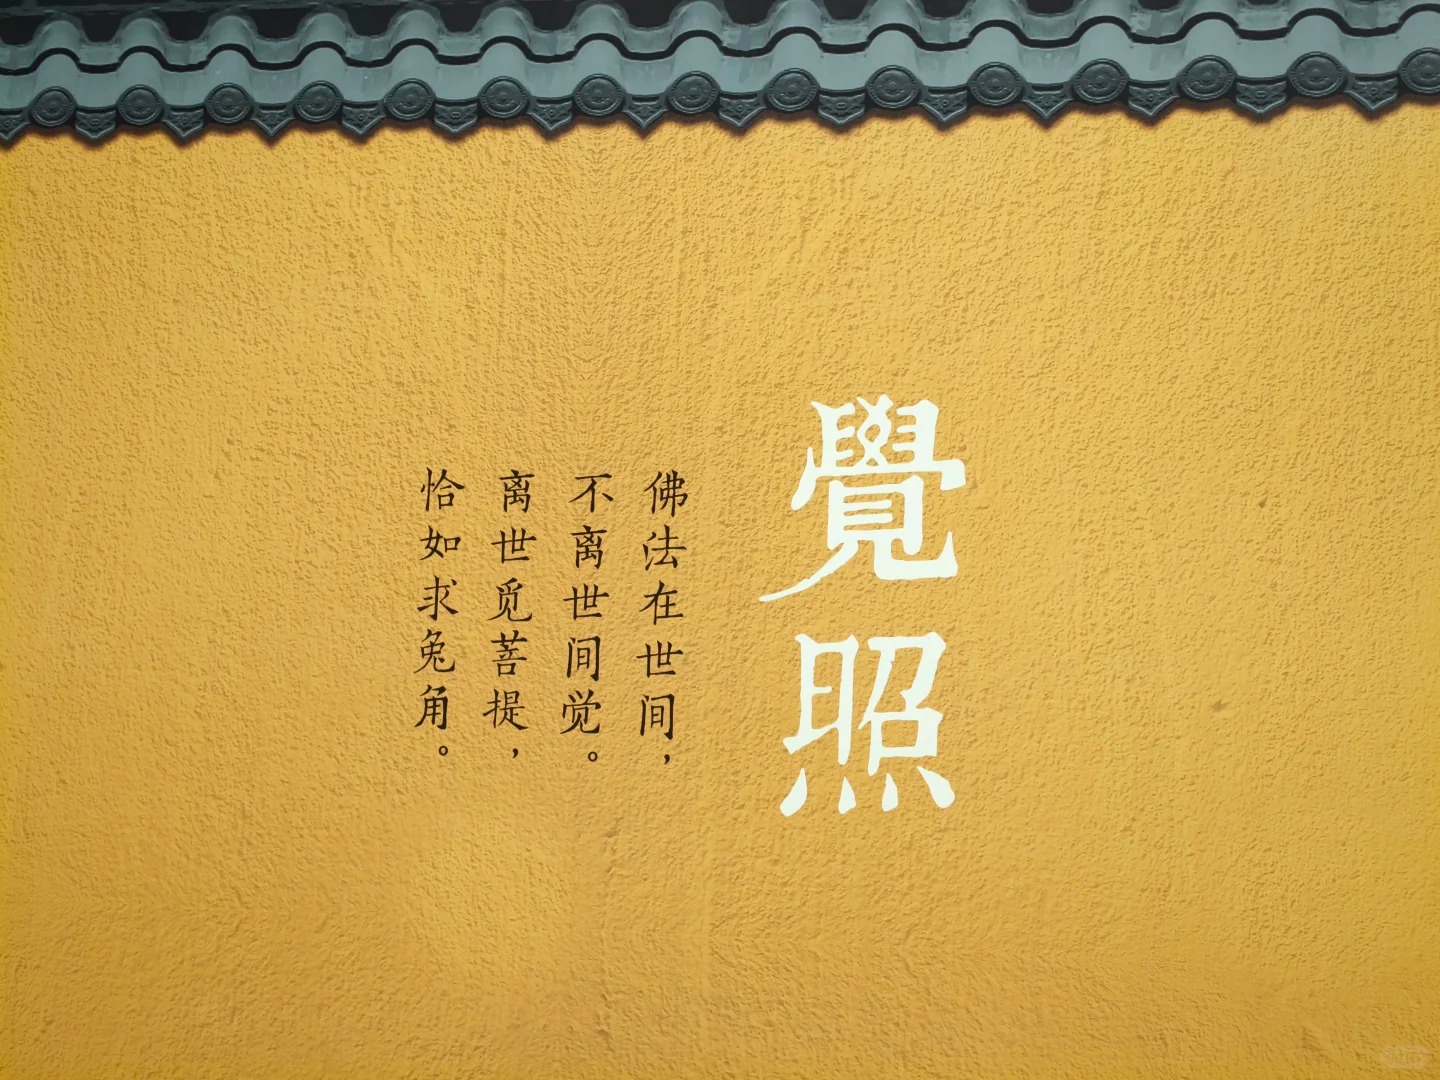 覺照
佛法在世间，
不离世间觉。
离世觅菩提，
恰如求兔角。